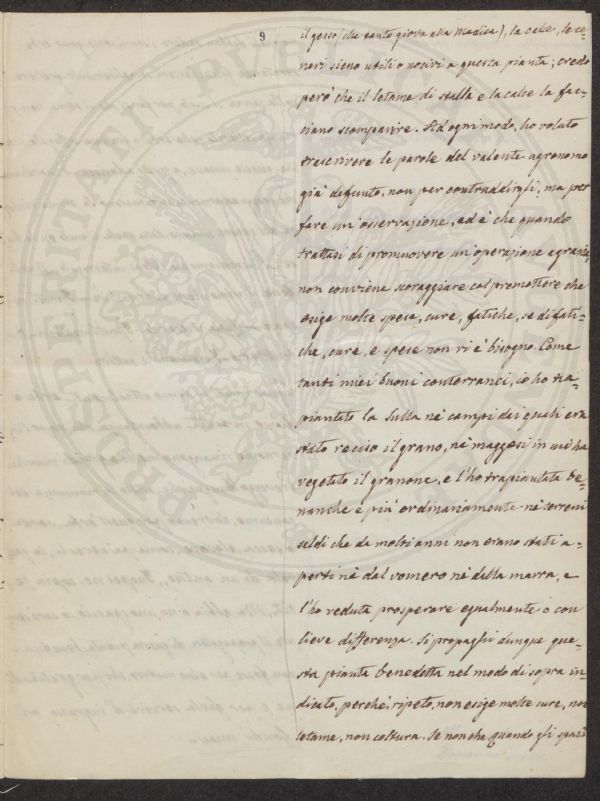 9
il gesso (che tanto giova alla Medica), la calce, le ce-
neri sieno utili o nocivi a questa pianta; credo
però che il letame di stalla e la calce la fac-
ciano scomparire. Ad ogni modo, ho voluto
trascrivere le parole del valente agronomo
già defunto, non per contraddirgli, ma per
fare un'osservazione, ed è che quando
trattasi di promuovere un'operazione agraria,
non conviene scoraggiare col premettere che
esige molte spese, cure, fatiche, se di fati-
che, cure, e spese non vi è bisogno. Come
tanti miei buoni conterranei, io ho tra-
piantato la Sulla ne' campi dai quali era
stato reciso il grano, ne' maggesi in cui ha
vegetato il granone, e l'ho trapiantata be-
nanche e più ordinariamente ne' terreni
saldi che da molti anni non erano stati a-
perti nè dal vomero nè dalla marra, e
l'ho veduta prosperare egualmente o con
lieve differenza. Si propaghi dunque que-
sta pianta benedetta nel modo di sopra in-
dicato, perchè, ripeto, non esige molte cure, non
letame, non coltura. Se non che, quando gli spazi
PROSPERITATI PUBL